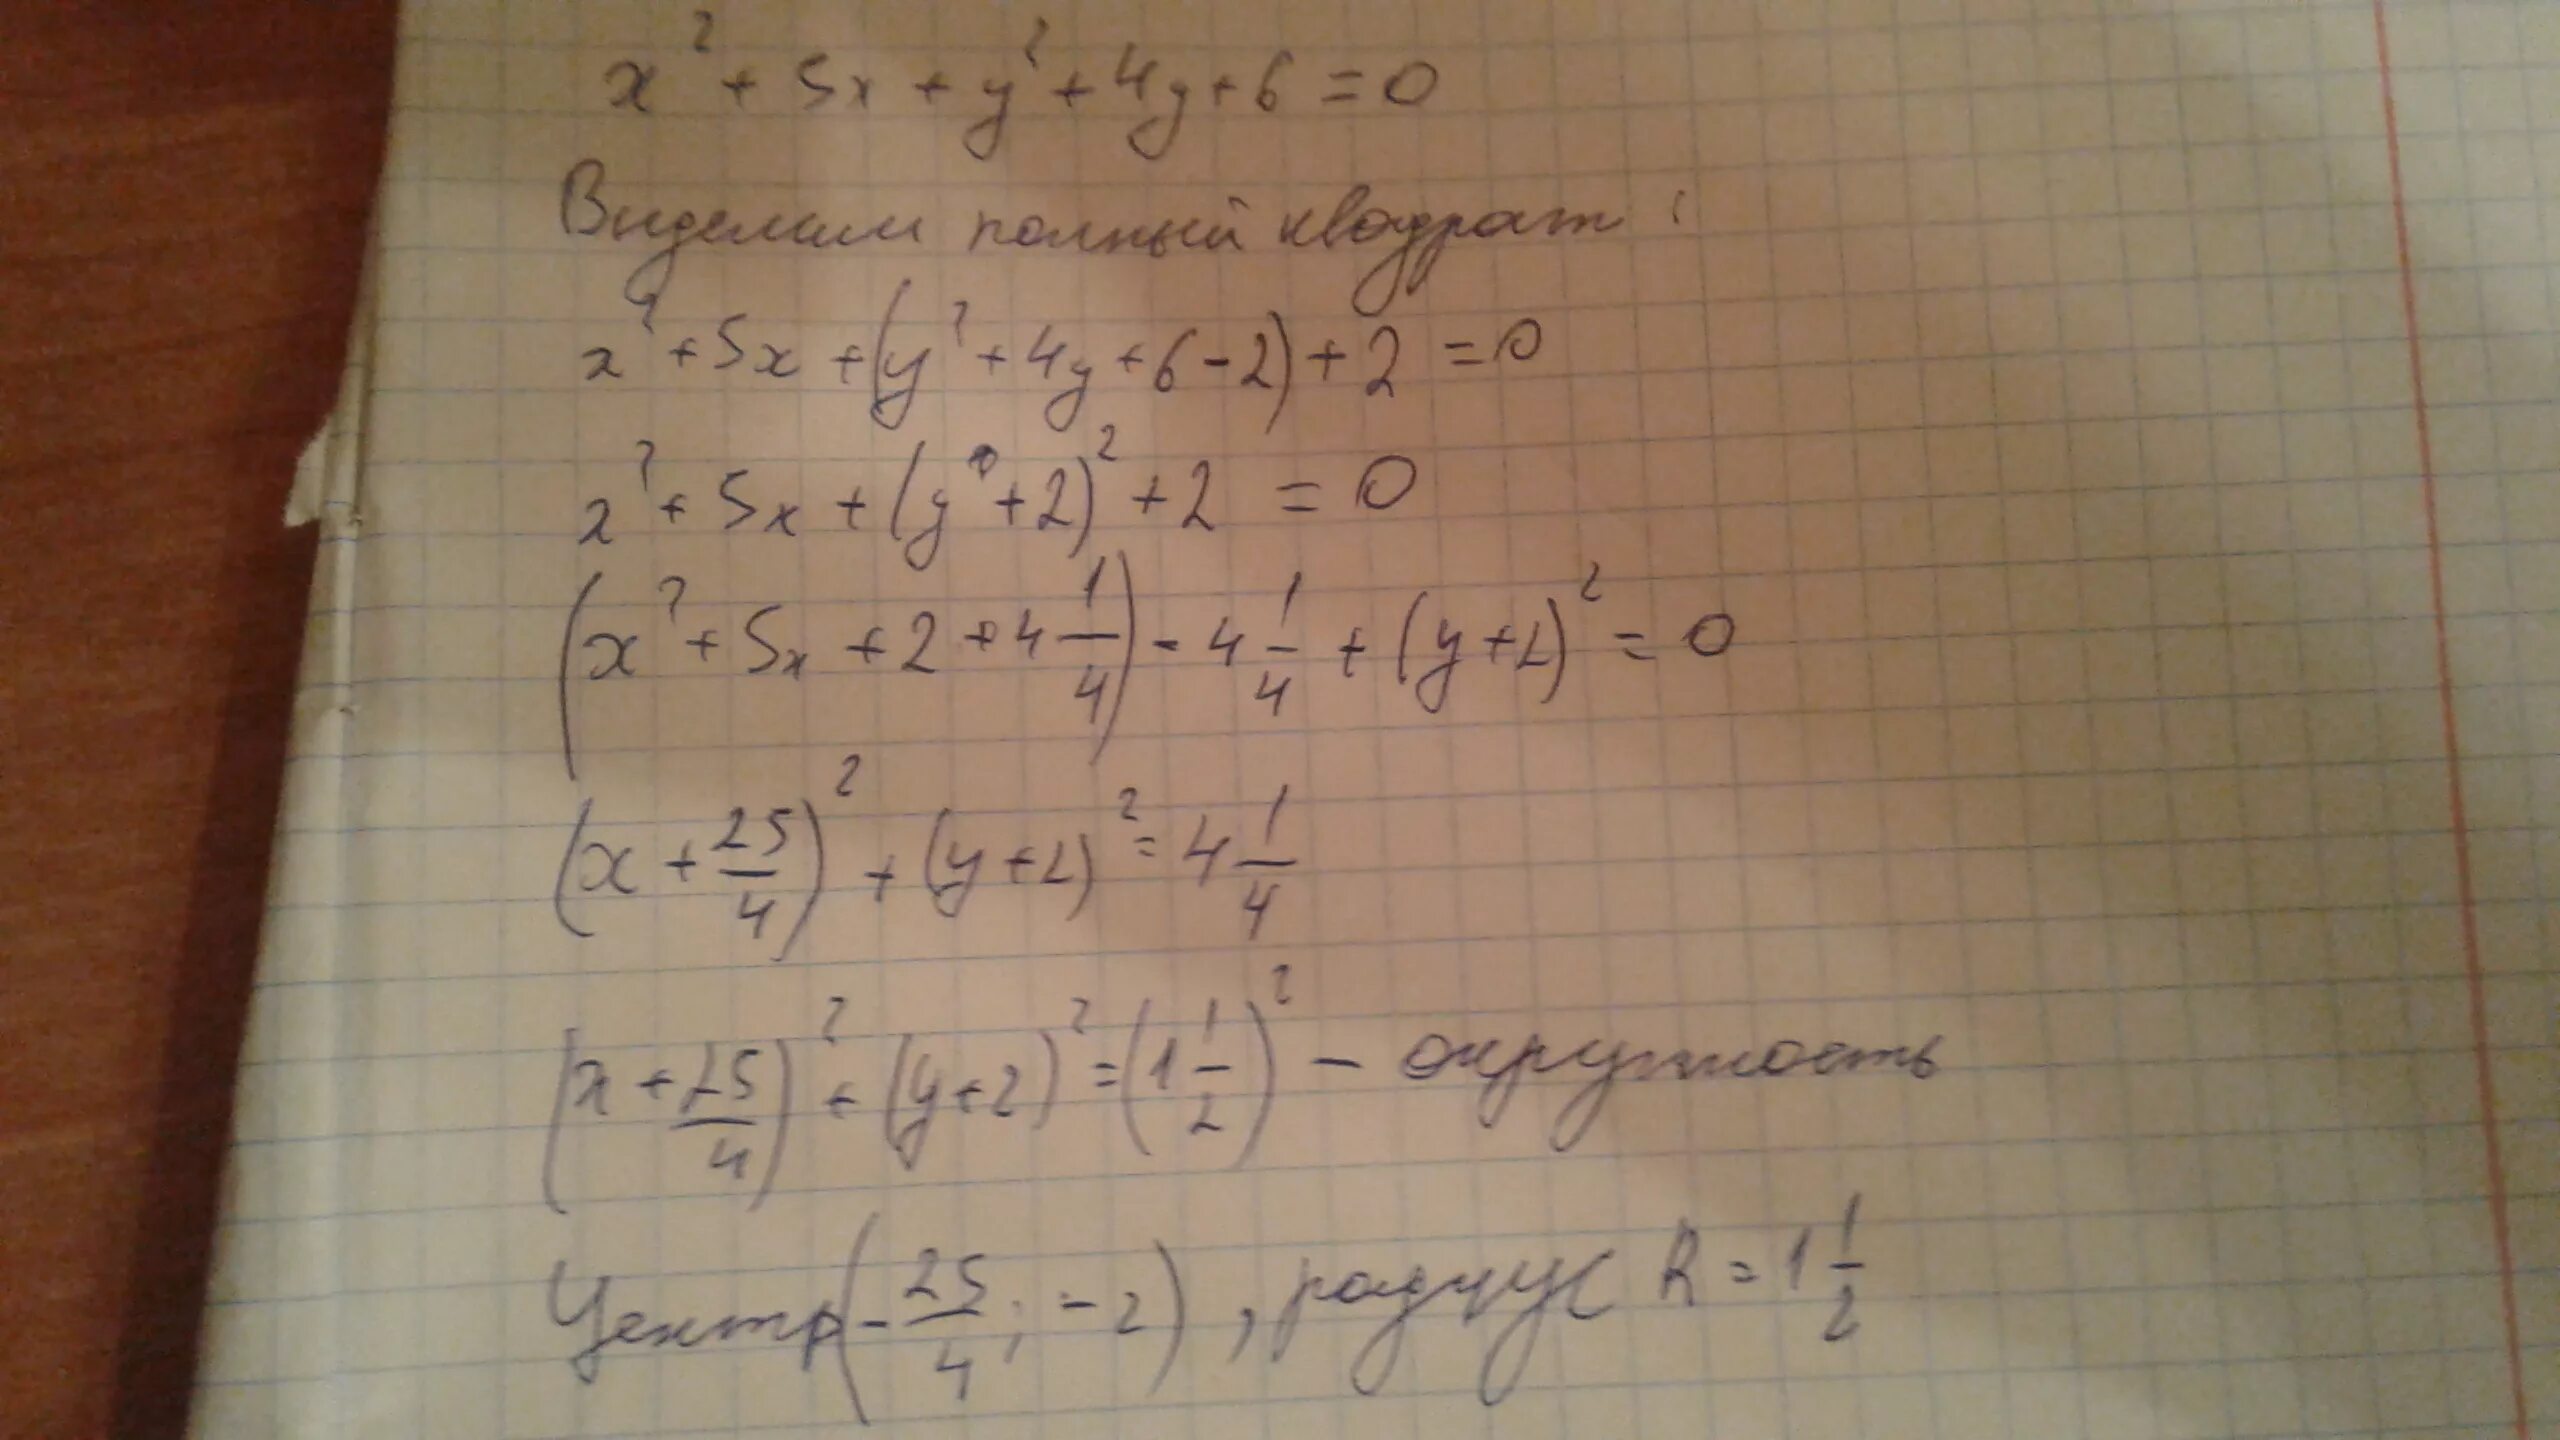 x² + 5x + y² + 4y + 6 = 0
Выделим полный квадрат:
x² + 5x + (y² + 4y + 6 - 2) + 2 = 0
x² + 5x + (y + 2)² + 2 = 0
(x² + 5x + 2 + 4 1/4) - 4 1/4 + (y + 2)² = 0
(x + 25/4)² + (y + 2)² = 4 1/4
(x + 25/4)² + (y + 2)² = (1 1/2)² - окружность
Центр (- 25/4 ; - 2), радиус R = 1 1/2